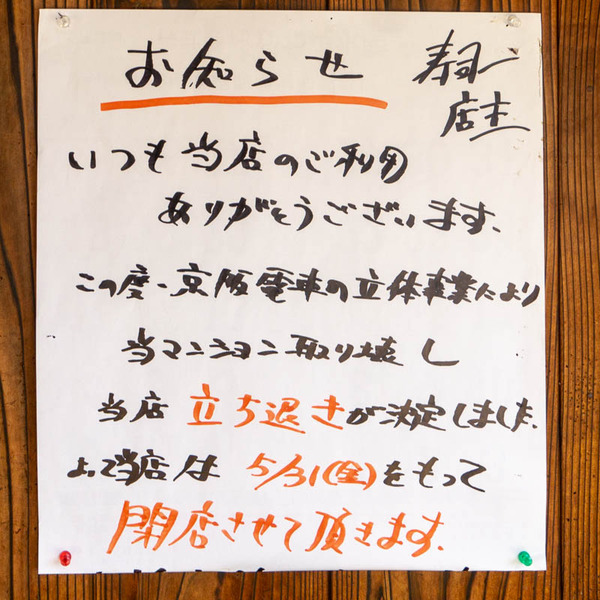 お知らせ
店主
いつも当店のご利用
ありがとうございます、
この度、京阪電車の立体事業により
当マンション取り壊し
当店 立ち退きが決定しました、
よって当店は 5/31(金)をもって
閉店させて頂きます、